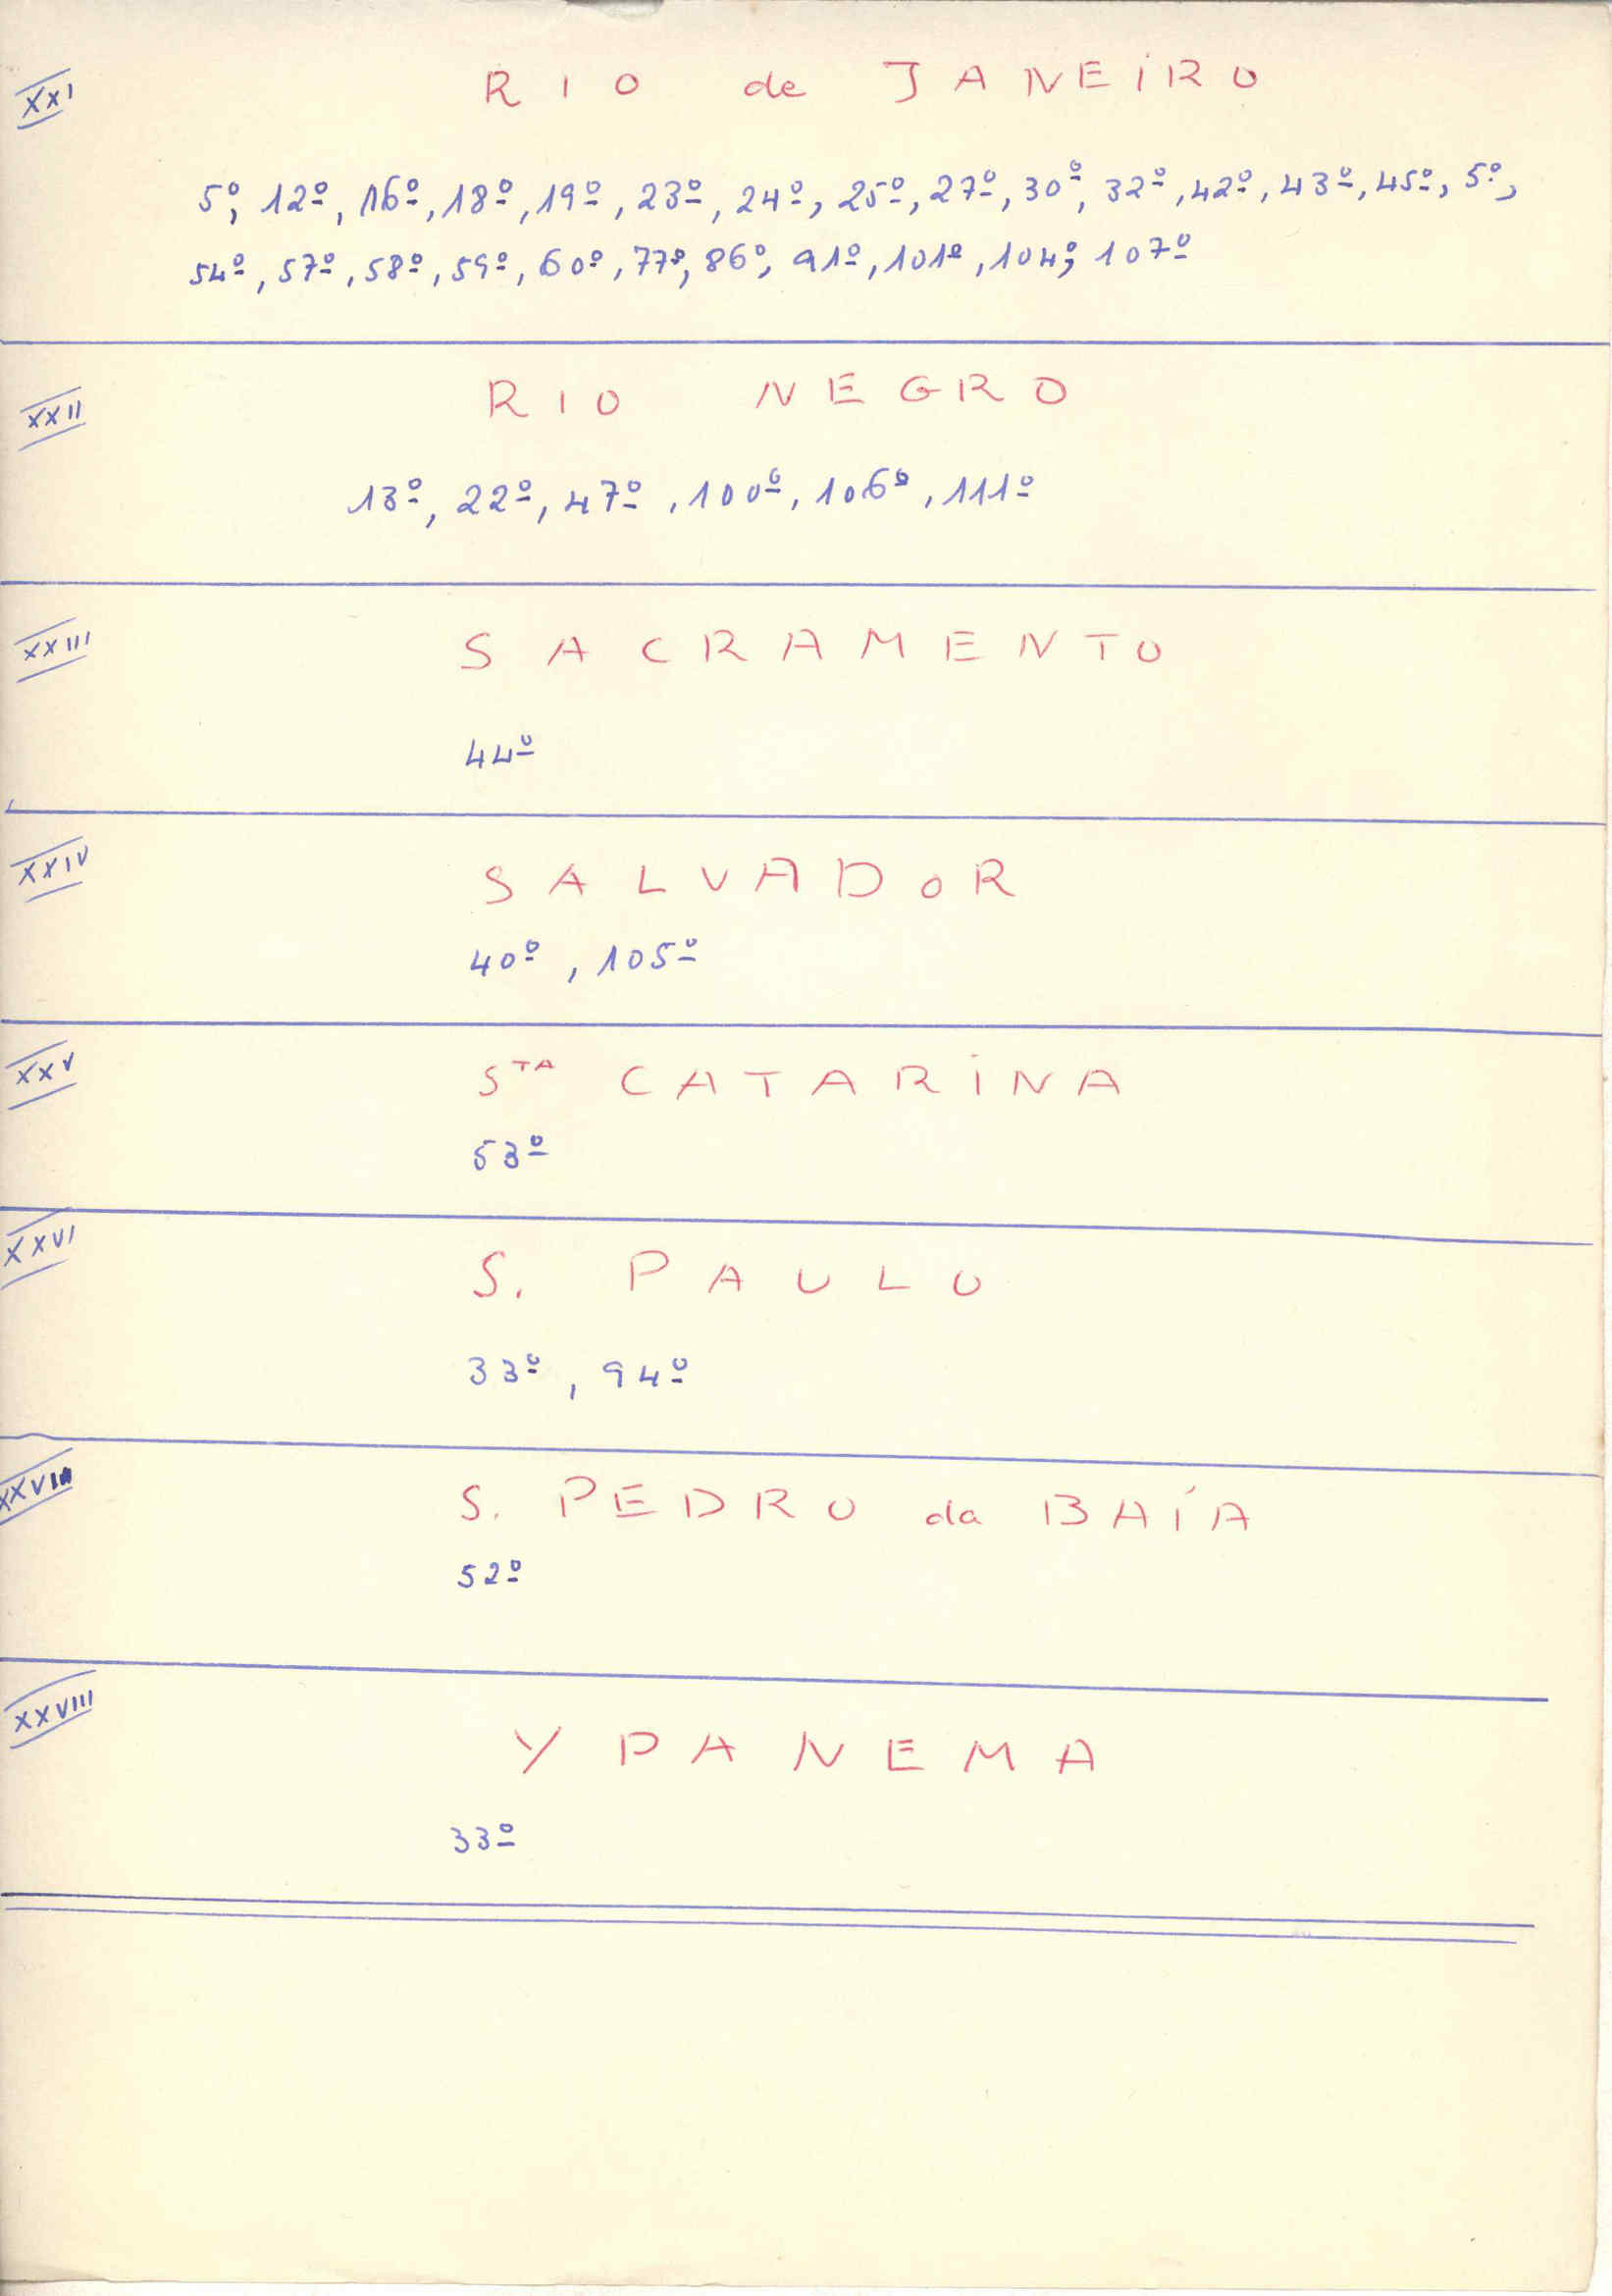 XXI
RIO de JANEIRO
5º, 12º, 16º, 18º, 19º, 23º, 24º, 25º, 27º, 30º, 32º, 42º, 43º, 45º, 5º,
54º, 57º, 58º, 59º, 60º, 77º, 86º, 91º, 101º, 104º, 107º
XXII
RIO NEGRO
13º, 22º, 47º, 100º, 106º, 111º
XXIII
SACRAMENTO
44º
XXIV
SALVADOR
40º, 105º
XXV
STA CATARINA
53º
XXVI
S. PAULO
33º, 94º
XXVII
S. PEDRO da BAÍA
52º
XXVIII
YPANEMA
33º